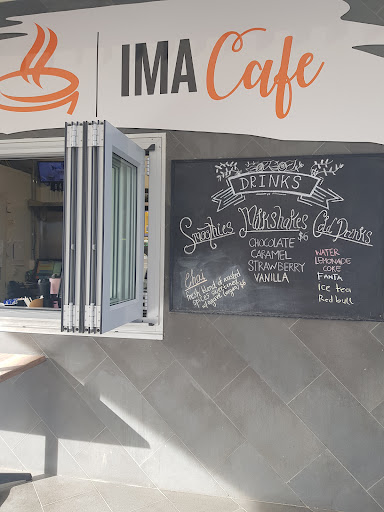 IMA Cafe
DRINKS
Smoothies Milkshakes Cold Drinks
$6
CHOCOLATE
CARAMEL
STRAWBERRY
VANILLA
WATER
LEMONADE
COKE
FANTA
Ice tea
Red bull
Chai
Fresh blend of